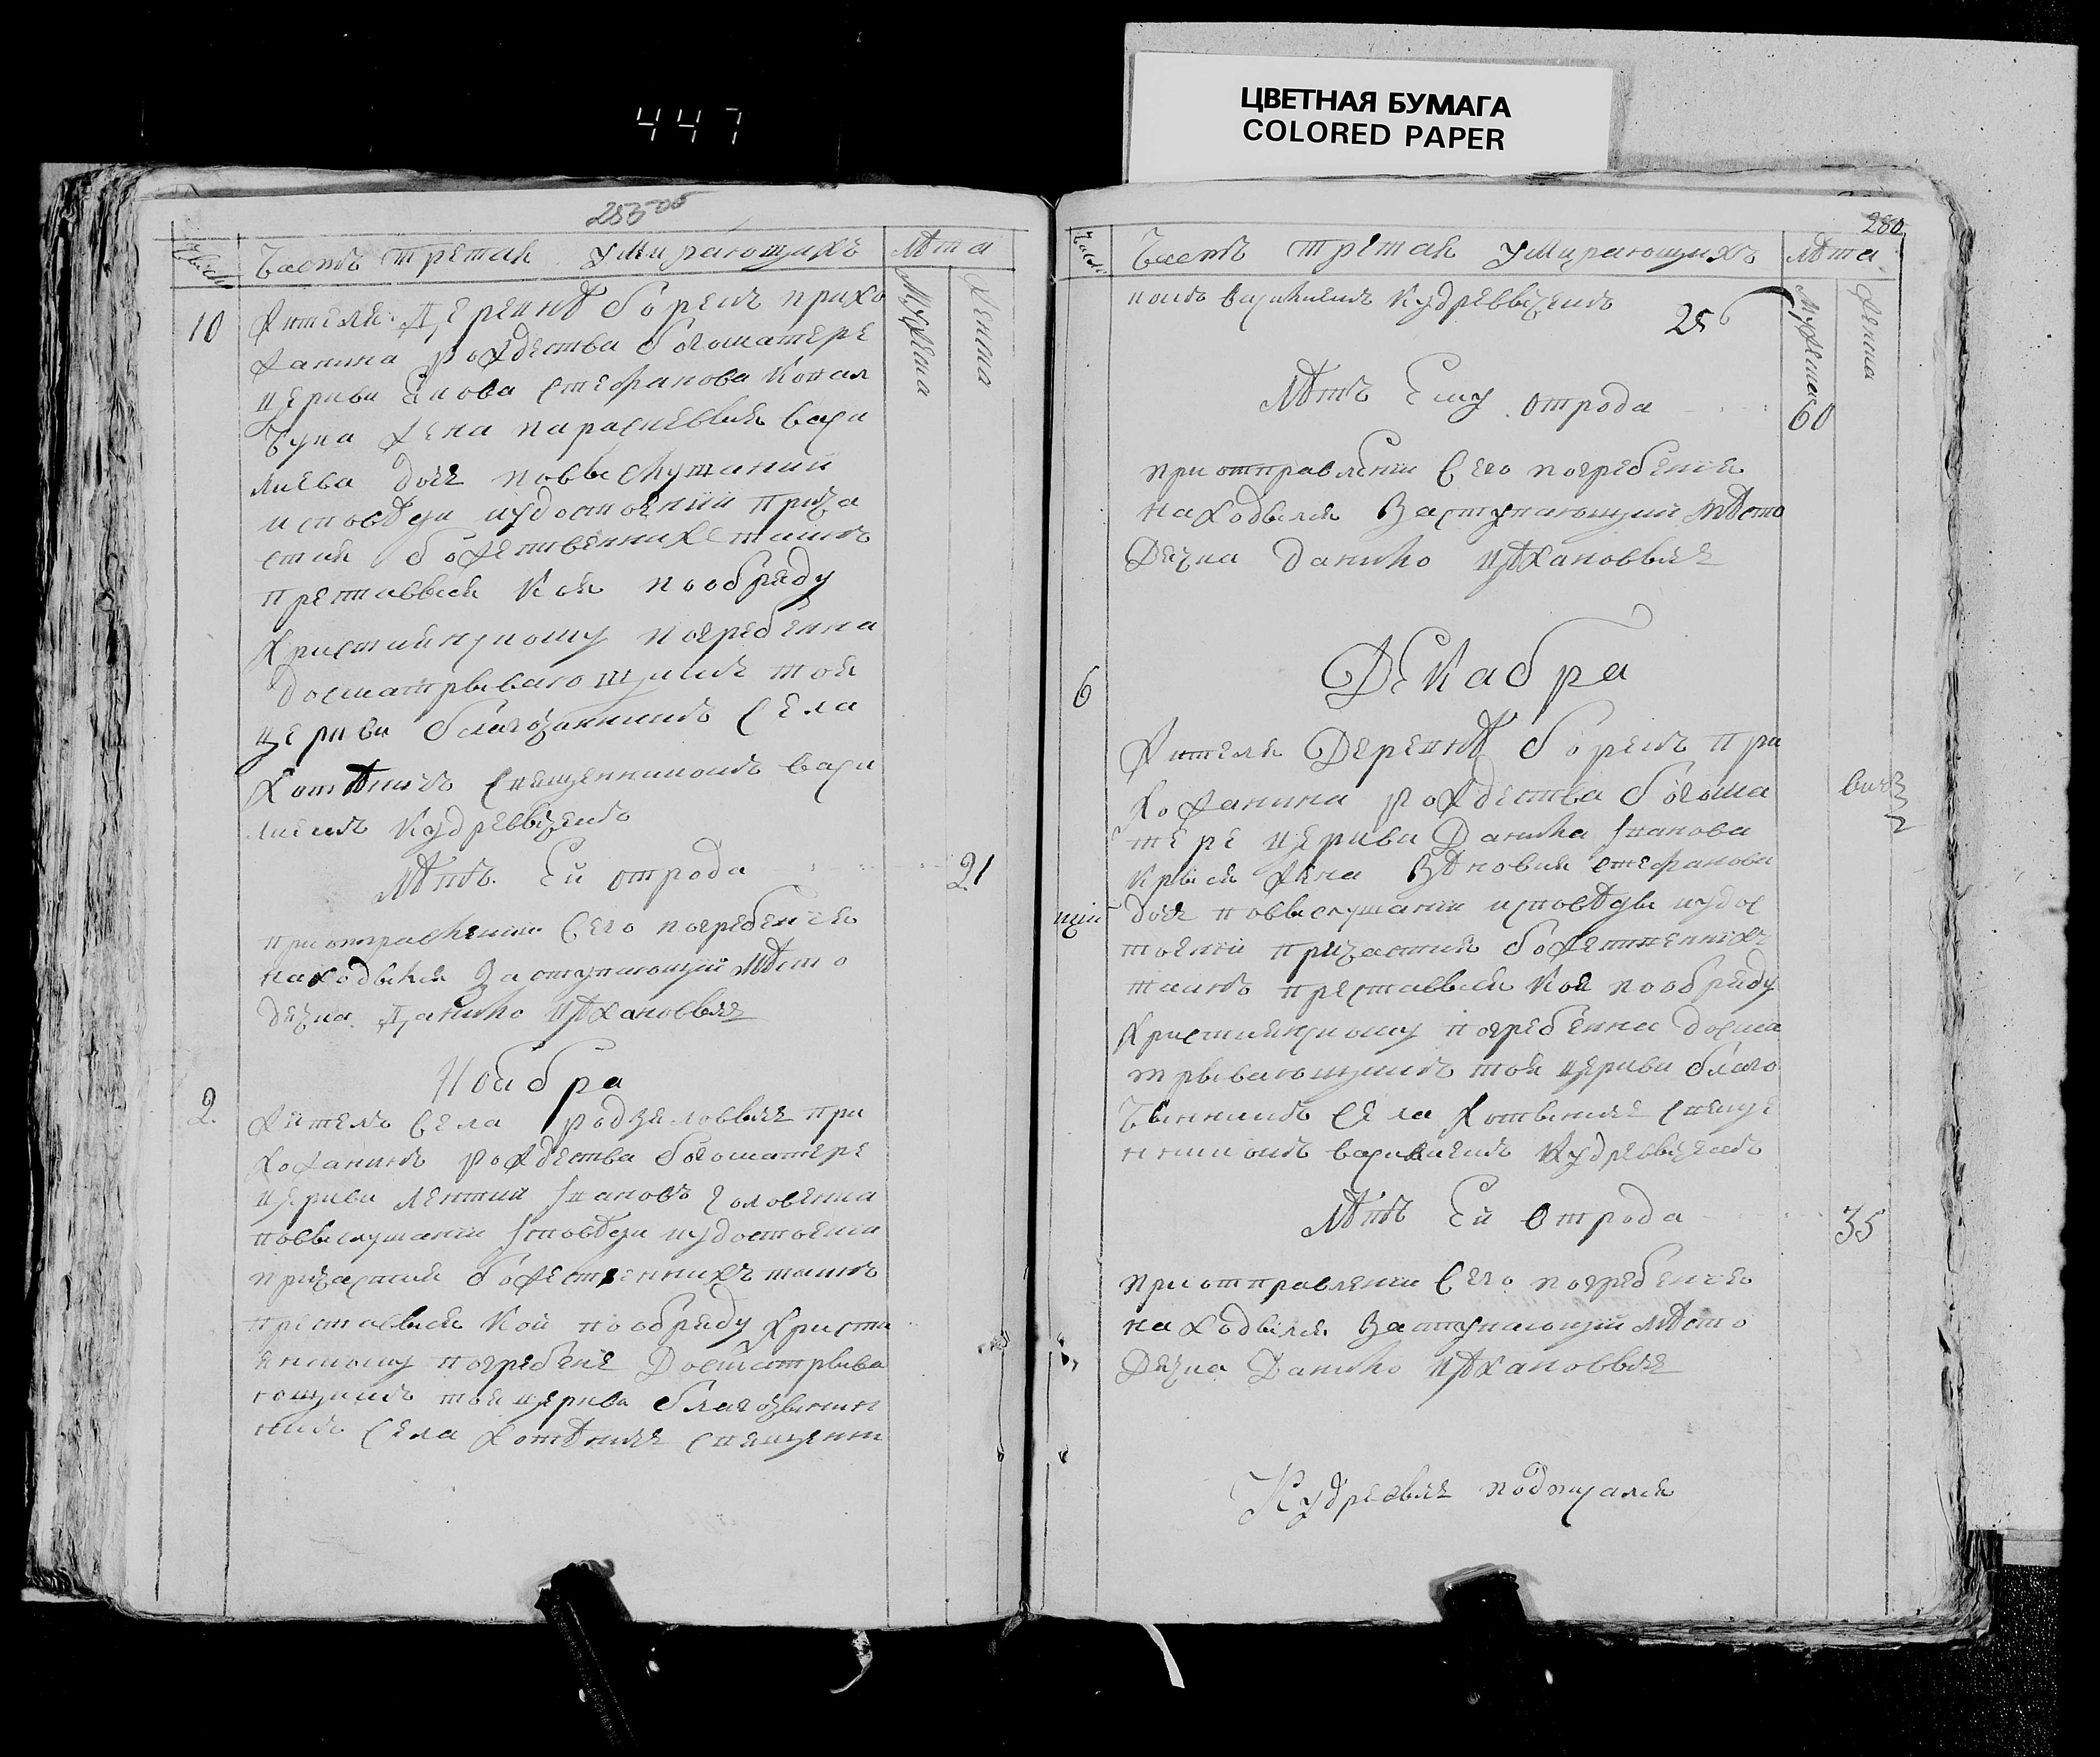 447
ЦВЕТНАЯ БУМАГА
COLORED PAPER
285 об
Число
Часть третая Умирающихъ
Лѣта
Мужеска
Женска
10
Жителя Деревнѣ борекъ прихо
жанина рождества богоматере
церкви стефанова
жена параскевыя васи
лиева дочь повыслушании
исповѣди иудостоении прича
стия божественнихъ таинъ
преставися коя пообряду
Християнскому погребенна
досматрывающимъ тоя
церкви благочиннимъ села
Хотѣнчъ священникомъ васи
лиемъ Кудревычемъ
Лѣтъ Ей отрода
21
приотправлении Сего погребение
находывся Заступающий мѣсто
дячка Данило Цѣхановвич
Ноабра
2.
Житель Села при
хожанинъ рождества богоматере
церкви Леитий Iвановъ Головенка
повыслушании Iсповѣди иудостоении
причастия божественнихъ таинъ
преставися кой пообряду христи
янскому погребене Досматрыва
ющимъ тоя церкви благочинни
нимъ Села священни
280
Число
Часть третая Умирающихъ
Лѣта
Мужеска
Женска
комъ василиемъ Кудревычемъ
286
Лѣтъ Ему отрода
60
приотправлении Сего погребение
находывся Заступающий мѣсто
Дячка Данило Цѣхановвич
Декабра
6
Жителя Деревнѣ борекъ при
хожанина рождества богома
тере церкви Данила Iванова
жена Зѣновия стефанова
дочь повыслушании исповѣды иудос
тоении причастия божественнихъ
таинъ преставися коя пообряду
Християнскому погребенна досма
трывающимъ тоя церкви благо
чыннимъ Села свяще
нникомъ василиемъ Кудревычемъ
Лѣтъ Ей Отрода
35
приотправлении Сего погребение
находывся Заступающий мѣсто
Дячка Данило Цѣхановвич
Кудревыч подписался